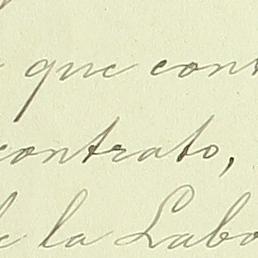 que con
contrato,
de la Labo